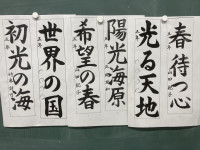 春待つ心
光る天地
陽光海原
希望の春
世界の国
初光の海